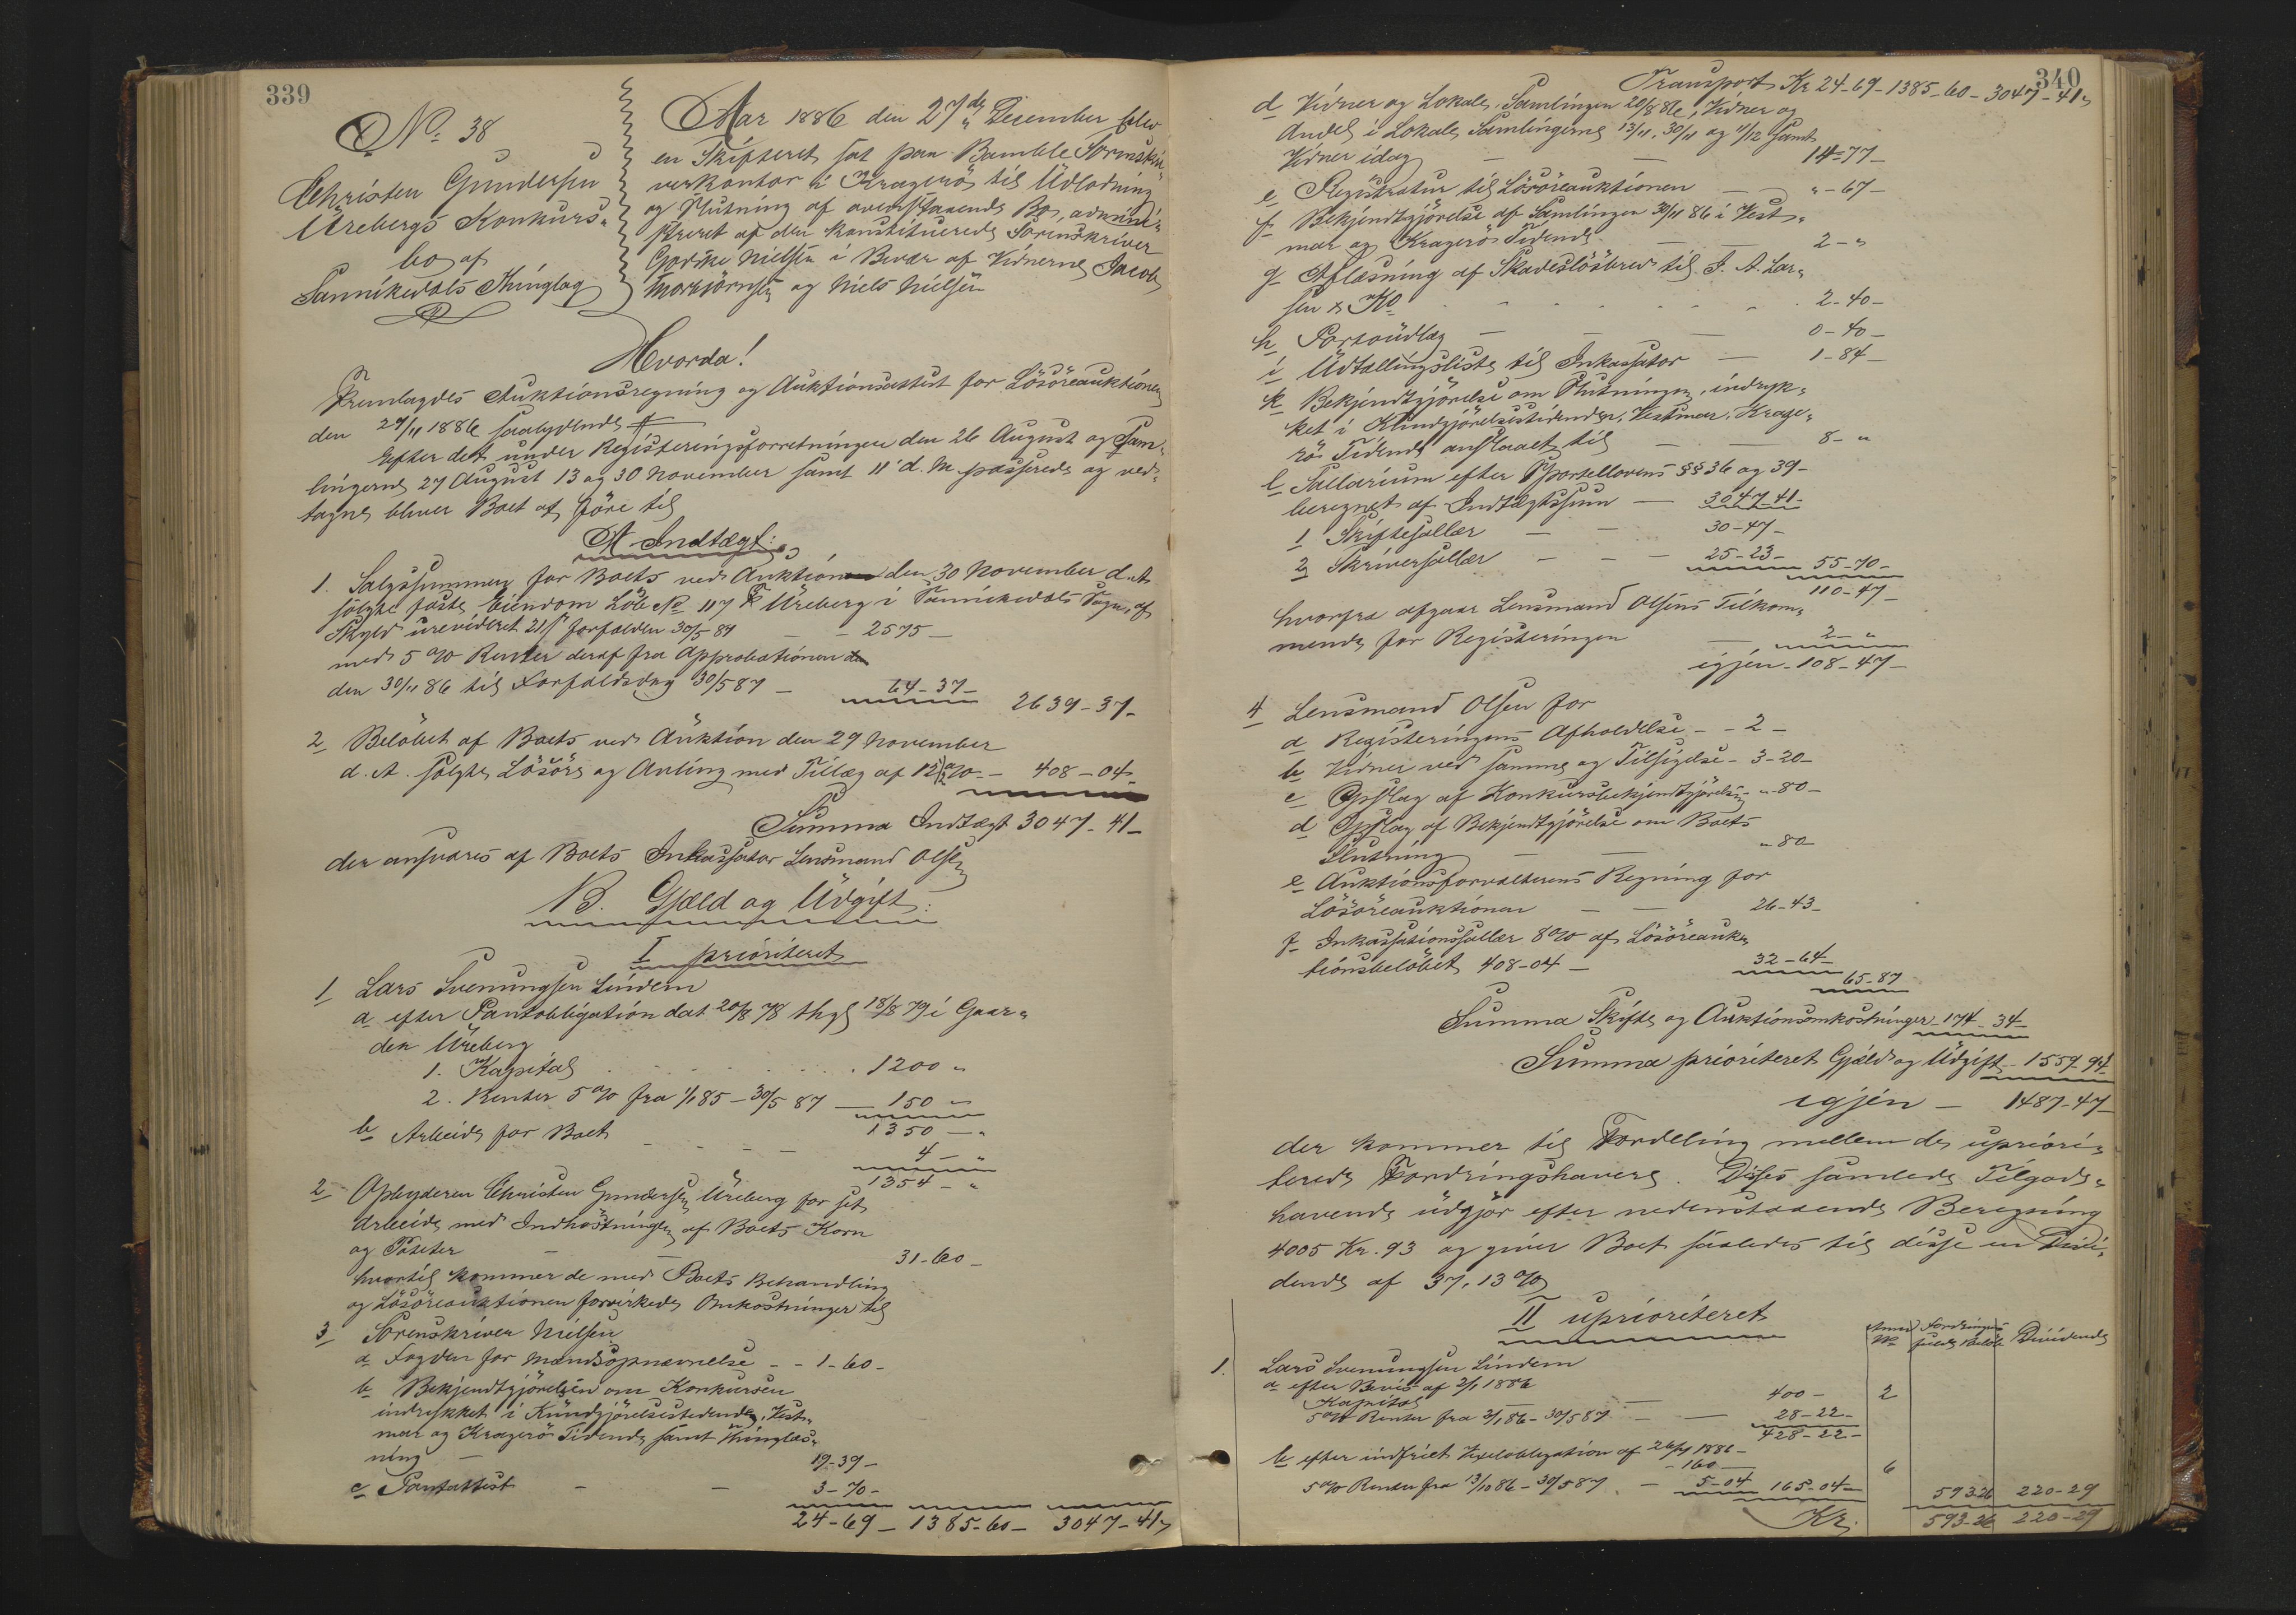 339
No. 38
Christen Gundersen
Urebergs Konkurs-
bo af
Sannikedals Thinglag
Aar 1886 den 27de Desember blev
en Skifteret sat paa Bamble Sorenskri-
verkontor i Kragerö til Udlodning
og Slutning af ovenstaaende Bo, admini-
streret af den konstituerede Sorenskriver
Nielsen i Overvær af Vidnerne Jacob
Morbjörnsen og Niels Nielsen
Hvorda!
Fremlagdes Auktionsregning og Auktionsattest for Lösöreauktionen
den 29/11 1886 saalydende
Efter det under Registeringsforretningen den 26 August og Sam-
lingerne 27 August 13 og 30 November samt 11' d. M. passerede og ved-
tagne bliver Boet at före til
A Indtægt:
1. Salgssummen for Boets ved Auktion den 30 November d. A.
solgte faste Eiendom Löb No 117 Ureberg i Sannikedals Sogn, af
Skyld urevideret forfalden 30/5 87 - - 2575 -
med 5 % Renter deraf fra Approbationen
den 30/11 86 til Forfaldsdag 30/5 87 - 64-37 -
2639-37-
2 Belöbet af Boets ved Auktion den 29 November
d. A. solgte Lösöre og Avling med Tillæg af % - 408-04-
Summa Indtægt 3047-41-
der ansvares af Boets Inkassator Lensmand Olsen
B. Gjæld og Udgift:
I prioriteret
1 Lars Svenungsen Lindem
a efter Pantobligation dat 20/8 78 thgl 18/8 79 i Gaar-
den Ureberg
1. Kapital . . . . . 1200 "
2. Renter 5 % fra 1/1 85 - 30/5 87 - 150 "
1350 - "
b Arbeide for Boet - - - 4 - "
1354 - "
2 Opbyderen Christen Gundersen Ureberg for sit
Arbeide med Indhöstningen af Boets Korn
og Poteter - - 31-60-
hvortil kommer de med Boets Behandling
og Lösöreauktionen forvirkede Omkostninger til
3 Sorenskriver Nielsen
a Fogden for Mandsopnævnelse - - 1-60-
b Bekjendtgjörelsen om Konkursen
indrykket i Kundgjörelsestidende, Vest-
mar og Kragerö Tidende samt Thinglæs-
ning - 19-39-
c Pantattest - - 3-70-
24-69- 1385-60- 3047-41
340
Transport Kr 24-69-1385-60-3047-41
d Vidner og Lokale, Samlingen 20/8 86, Vidner og
Andel i Lokale Samlingerne 13/11, 30/11 og 11/12 samt
Vidner idag - - 14-77-
e Registratur til Lösöreauktionen - "-67-
f Bekjendtgjörelse af Samlingen 30/11 86 i Vest-
mar og Kragerö Tidende - - 2-"
g Aflæsning af Skadeslösbrev til J. A. Lar-
sen & Ko - - - - - 2-40-
h Portoudlæg - - - 0-40-
i Udtallingsliste til Inkassator - 1-84-
k Bekjendtgjörelse om Slutningen, indryk-
ket i Kundgjörelsestidenden, Vestmar, Krage-
rö Tidende anslaaet til - - 8-"
l Sallarium efter Sportellovens §§ 36 og 39-
beregnet af Indtægtssum - 3047.41-
1 Skiftesallær - - 30-47-
2 Skriversallær - - - 25-23- 55-70-
110-47-
hvorfra afgaar Lensmand Olsens Tilkom-
mende for Registeringen - 2-"
igjen - 108-47-
4 Lensmand Olsen for
a Registeringens Afholdelse - - 2 -
b Vidner ved samme og Tilsigelse - 3-20-
c Opslag af Konkursbekjendtgjörelsen - "-80-
d Opslag af Bekjendtgjörelse om Boets
Slutning - - "-80-
e Auktionsforvalterens Regning for
Lösöreauktionen - - 26-43-
f Inkassationssallær 8 % af Lösöreauk-
tionsbelöbet 408-04 - 32-64-
65-87
Summa Skifte og Auktionsomkostninger - 174-34-
Summa prioriteret Gjæld og Udgift - 1559-94
igjen - 1487-47-
der kommer til Fordeling mellem de upriori-
terede Fordringshavere. Disses samlede Tilgode-
havende udgjör efter nedenstaaende Beregning
4005 Kr. 93 og giver Boet saaledes til disse en Divi-
dende af 37,13 %
II uprioriteret
Anm No
Fordringens fulde Belöb
Dividende
1. Lars Svenungsen Lindem
a efter Bevis af 2/1 1886
Kapital - - 400 - 2
5 % Renter fra 2/1 86 - 30/5 87 - - 28-22-
428-22-
b efter indfriet Vexelobligation af 1886 -
- 160 - 6
5 % Renter fra 13/10 86 - 30/5 87 - 5-04 165-04- 593.26 220-29
Kr. 593-26 220-29